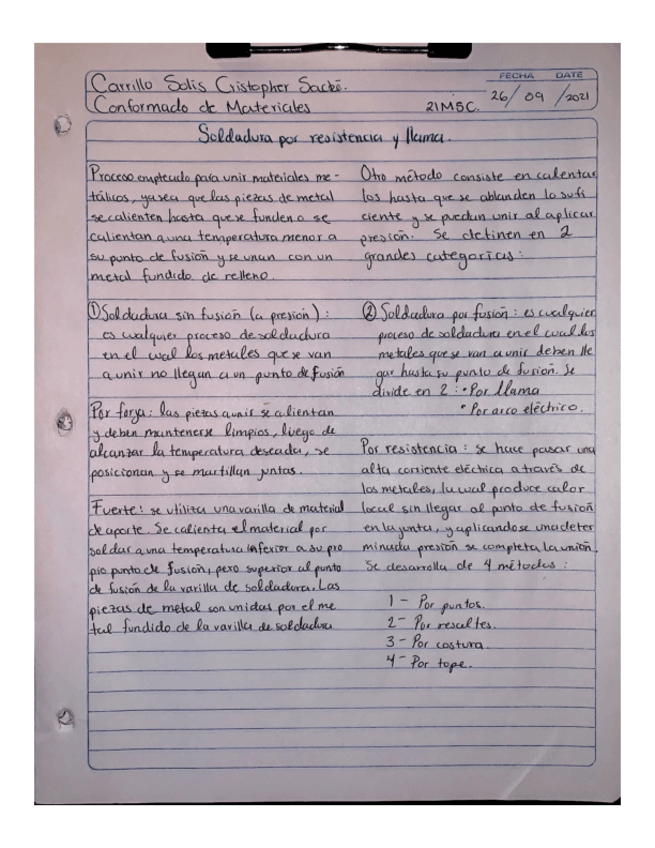 FECHA DATE
Carrillo Solis Cristopher Sacké.
Conformado de Materiales 21MSC. 26/ 09 /2021
Soldadura por resistencia y llama.
Proceso empleado para unir materiales me-
tálicos, ya sea que las piezas de metal
se calienten hasta que se funden o se
calientan a una temperatura menor a
su punto de fusión y se unan con un
metal fundido de relleno.
① Soldadura sin fusión (a presión) :
es cualquier proceso de soldadura
en el cual los metales que se van
a unir no llegan a un punto de fusión
Por forja: las piezas a unir se calientan
y deben mantenerse limpios, luego de
alcanzar la temperatura deseada, se
posicionan y se martillan juntas.
Fuerte: se utiliza una varilla de material
de aporte. Se calienta el material por
soldar a una temperatura inferior a su pro
pio punto de fusión, pero superior al punto
de fusión de la varilla de soldadura. Las
piezas de metal son unidas por el me
tal fundido de la varilla de soldadura
Otro método consiste en calentar
los hasta que se ablanden lo sufi
ciente y se puedan unir al aplicar
presión. Se definen en 2
grandes categorías:
② Soldadura por fusión : es cualquier
proceso de soldadura en el cual los
metales que se van a unir deben lle
gar hasta su punto de fusión. Se
divide en 2 : • Por llama
• Por arco eléctrico.
Por resistencia : se hace pasar una
alta corriente eléctrica a través de
los metales, la cual produce calor
local sin llegar al punto de fusión
en la junta, y aplicandose una deter
minada presión se completa la unión.
Se desarrolla de 4 métodos :
1 - Por puntos.
2 - Por resaltes.
3 - Por costura.
4 - Por tope.